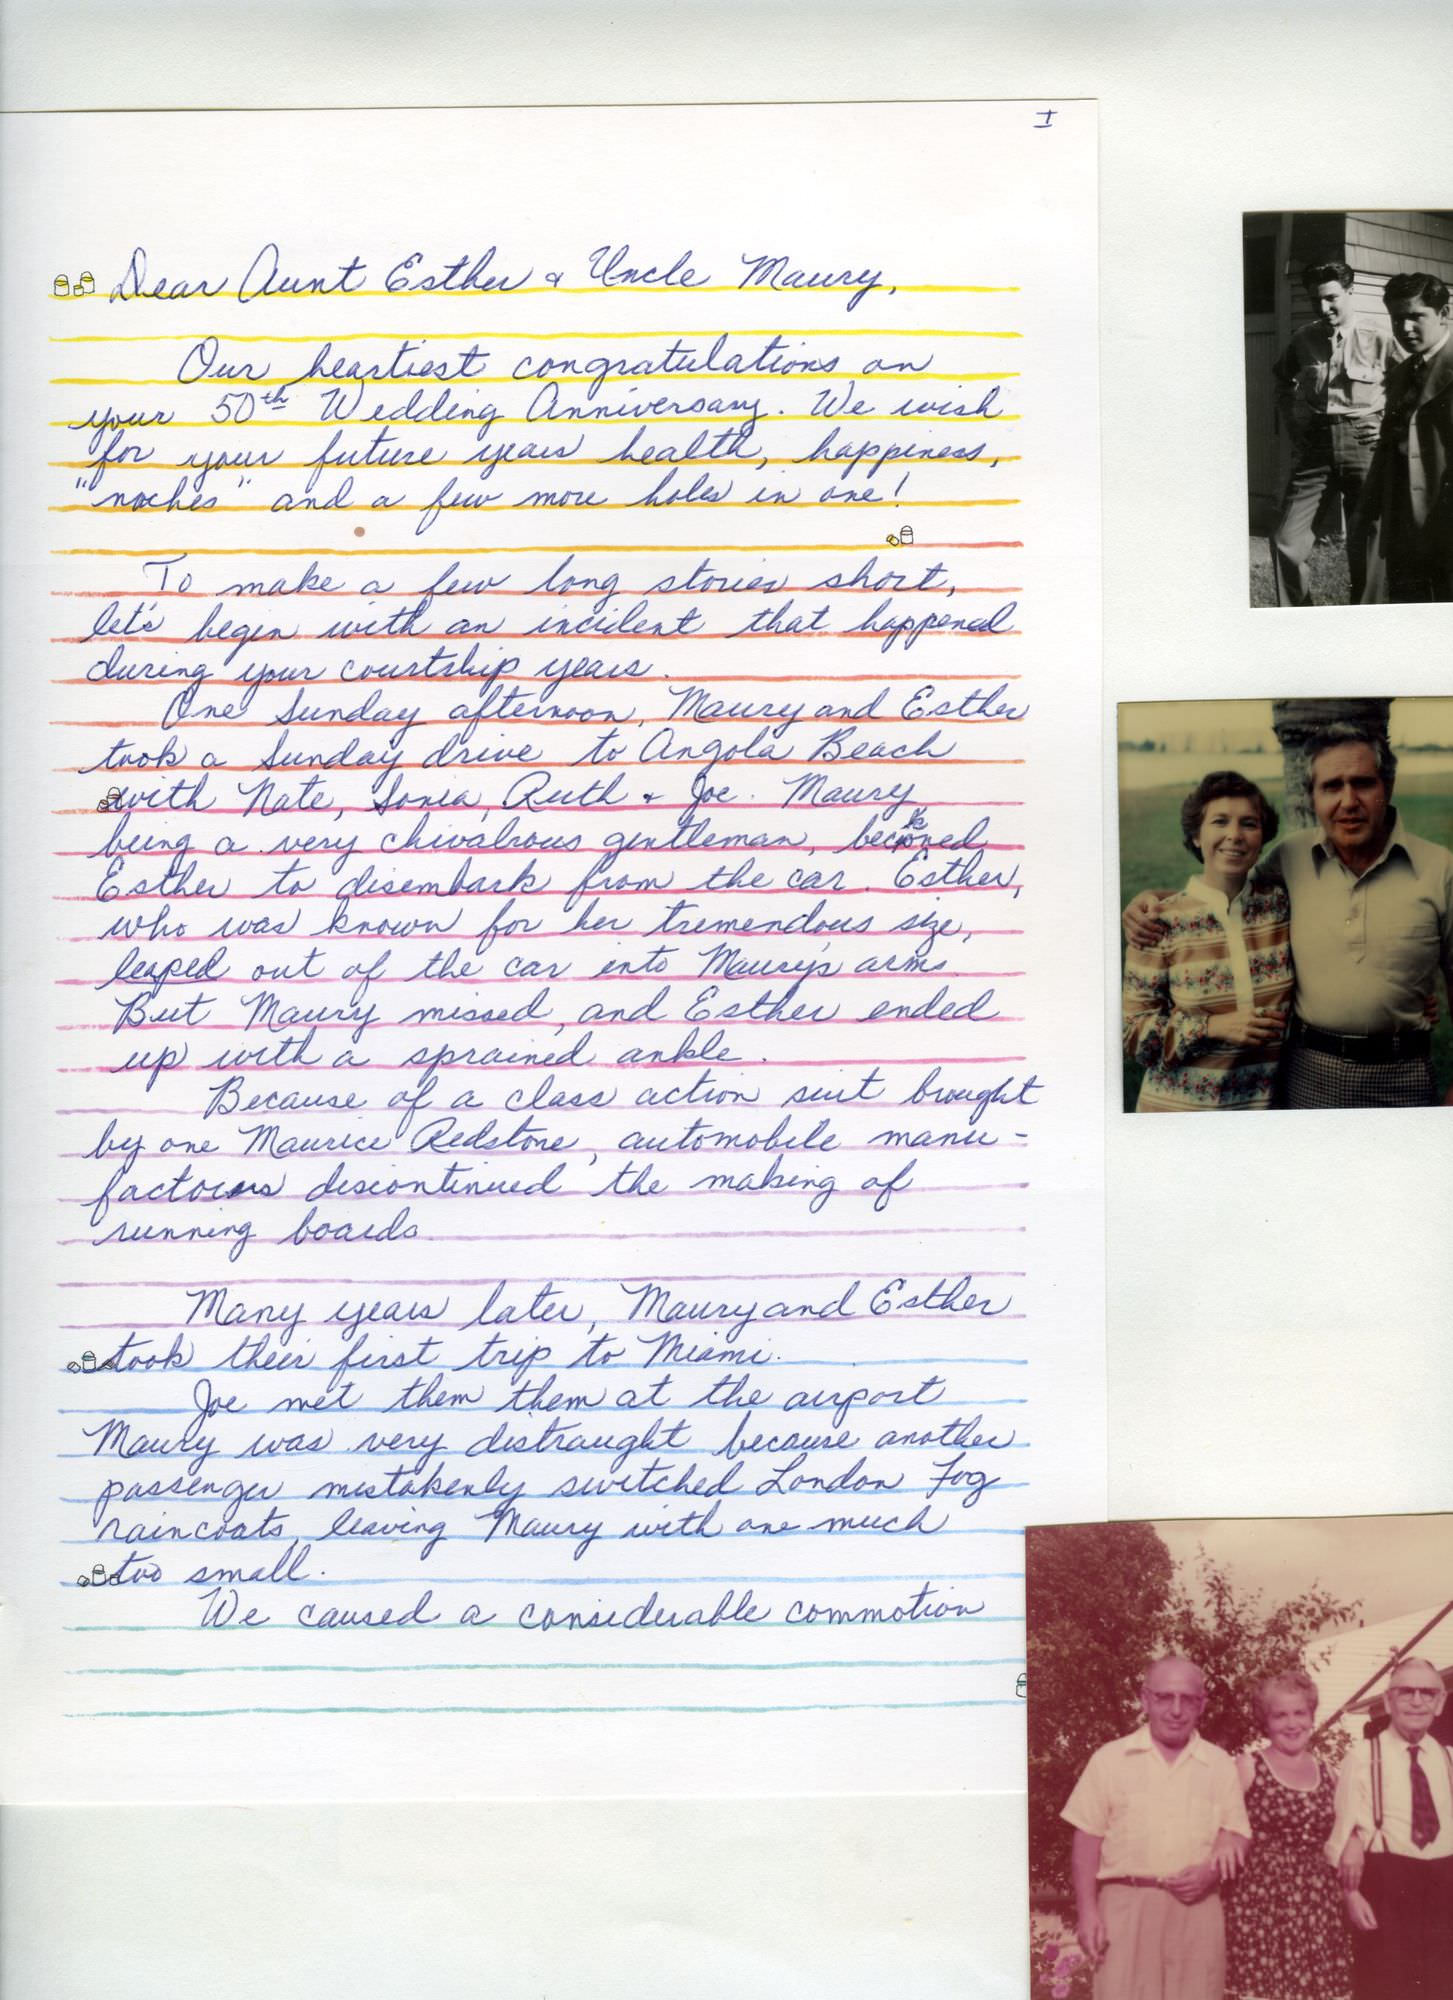 I
Dear Aunt Esther & Uncle Maury,
Our heartiest congratulations on
your 50th Wedding Anniversary. We wish
for your future years health, happiness,
"noches" and a few more holes in one!
To make a few long stories short,
let's begin with an incident that happened
during your courtship years.
One Sunday afternoon, Maury and Esther
took a Sunday drive to Angola Beach
with Nate, Sonia, Ruth & Joe. Maury
being a very chivalrous gentleman, beckoned
Esther to disembark from the car. Esther,
who was known for her tremendous size,
leaped out of the car into Maury's arms.
But Maury missed, and Esther ended
up with a sprained ankle.
Because of a class action suit brought
by one Maurice Redstone, automobile manu-
factories discontinued the making of
running boards.
Many years later, Maury and Esther
took their first trip to Miami.
Joe met them them at the airport
Maury was very distraught because another
passenger mistakenly switched London Fog
raincoats, leaving Maury with one much
too small.
We caused a considerable commotion